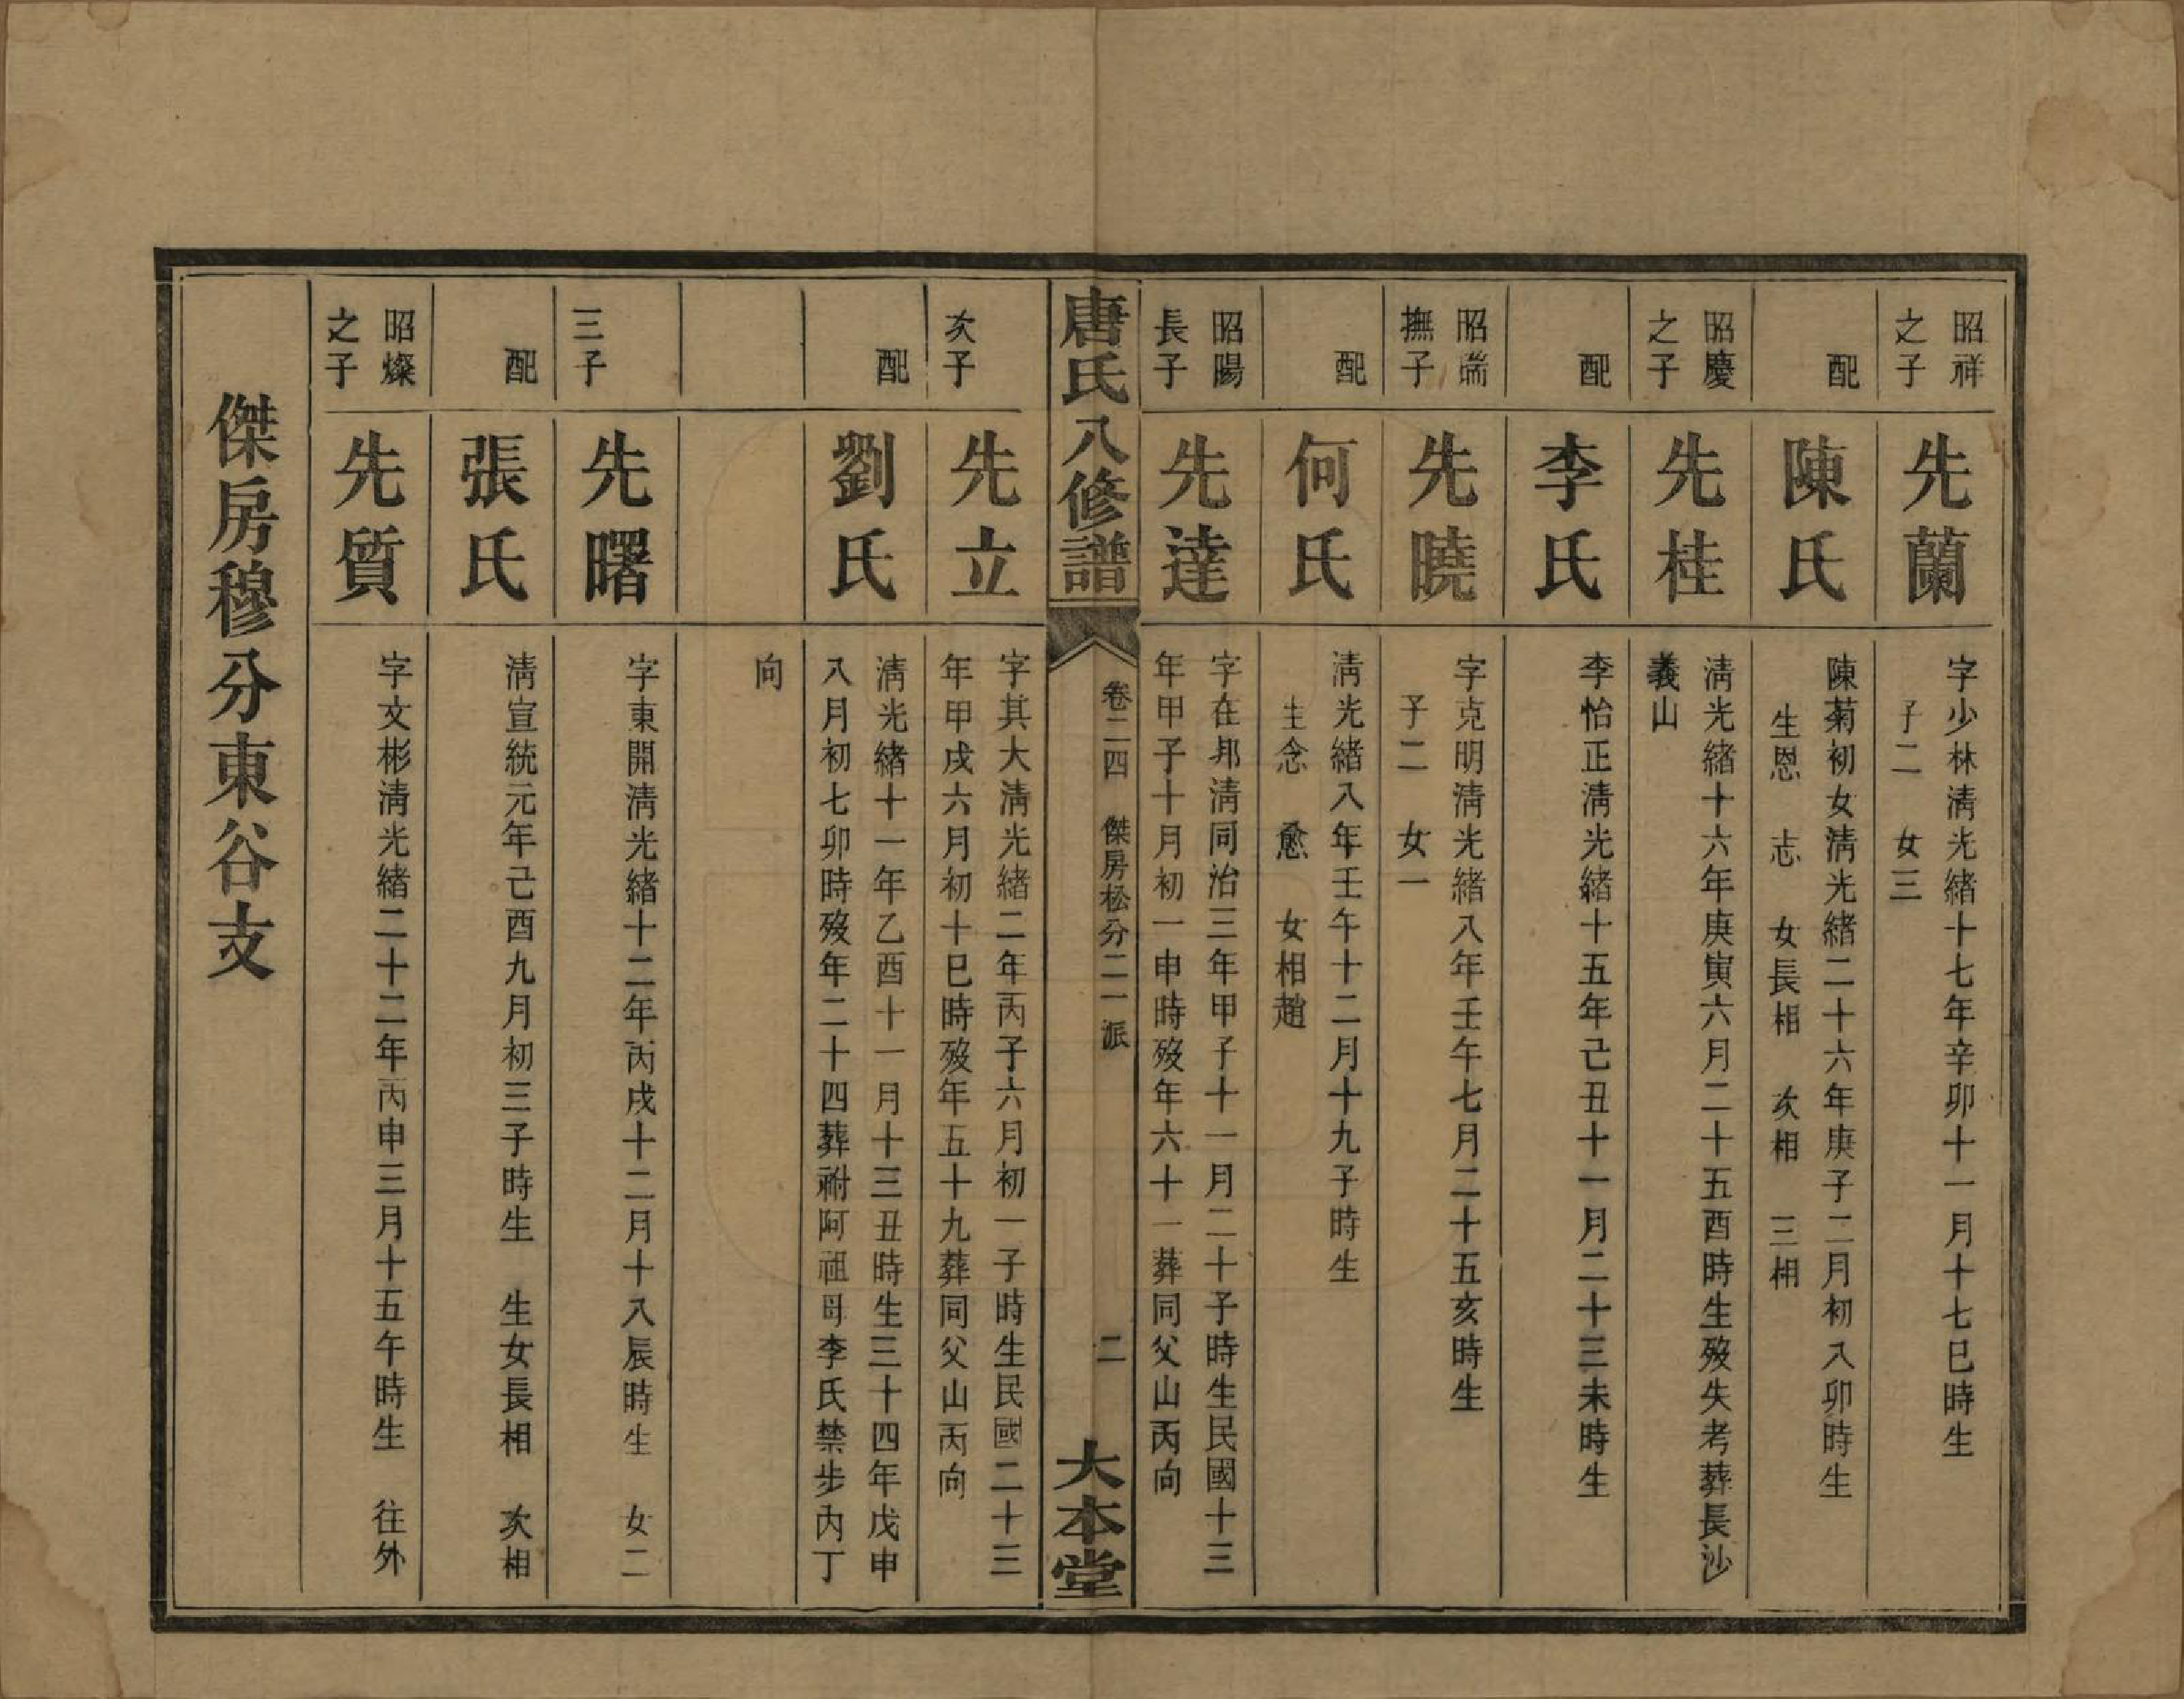 昭祥
之子
先蘭
字少林淸光緒十七年辛卯十一月十七巳時生
子二 女三
配
陳氏
陳菊初女淸光緒二十六年庚子二月初八卯時生
生恩 志 女長相 次相 三相
昭慶
之子
先桂
淸光緒十六年庚寅六月二十五酉時生歿失考葬長沙
義山
配
李氏
李怡正淸光緒十五年己丑十一月二十三未時生
昭端
撫子
先曉
字克明淸光緒八年壬午七月二十五亥時生
子二 女一
配
何氏
淸光緒八年壬午十二月十九子時生
生念 愈 女相趙
昭陽
長子
先達
字在邦淸同治三年甲子十一月二十子時生民國十三
年甲子十月初一申時歿年六十一葬同父山丙向
唐氏八修譜
卷二四 傑房松分二一派
二
大本堂
次子
先立
字其大淸光緒二年丙子六月初一子時生民國二十三
年甲戌六月初十巳時歿年五十九葬同父山丙向
配
劉氏
淸光緒十一年乙酉十一月十三丑時生三十四年戊申
八月初七卯時歿年二十四葬祔阿祖母李氏禁步內丁
向
三子
先曙
字東開淸光緒十二年丙戌十二月十八辰時生 女二
配
張氏
淸宣統元年己酉九月初三子時生 生女長相 次相
昭燦
之子
先質
字文彬淸光緒二十二年丙申三月十五午時生 往外
傑房穆分東谷支